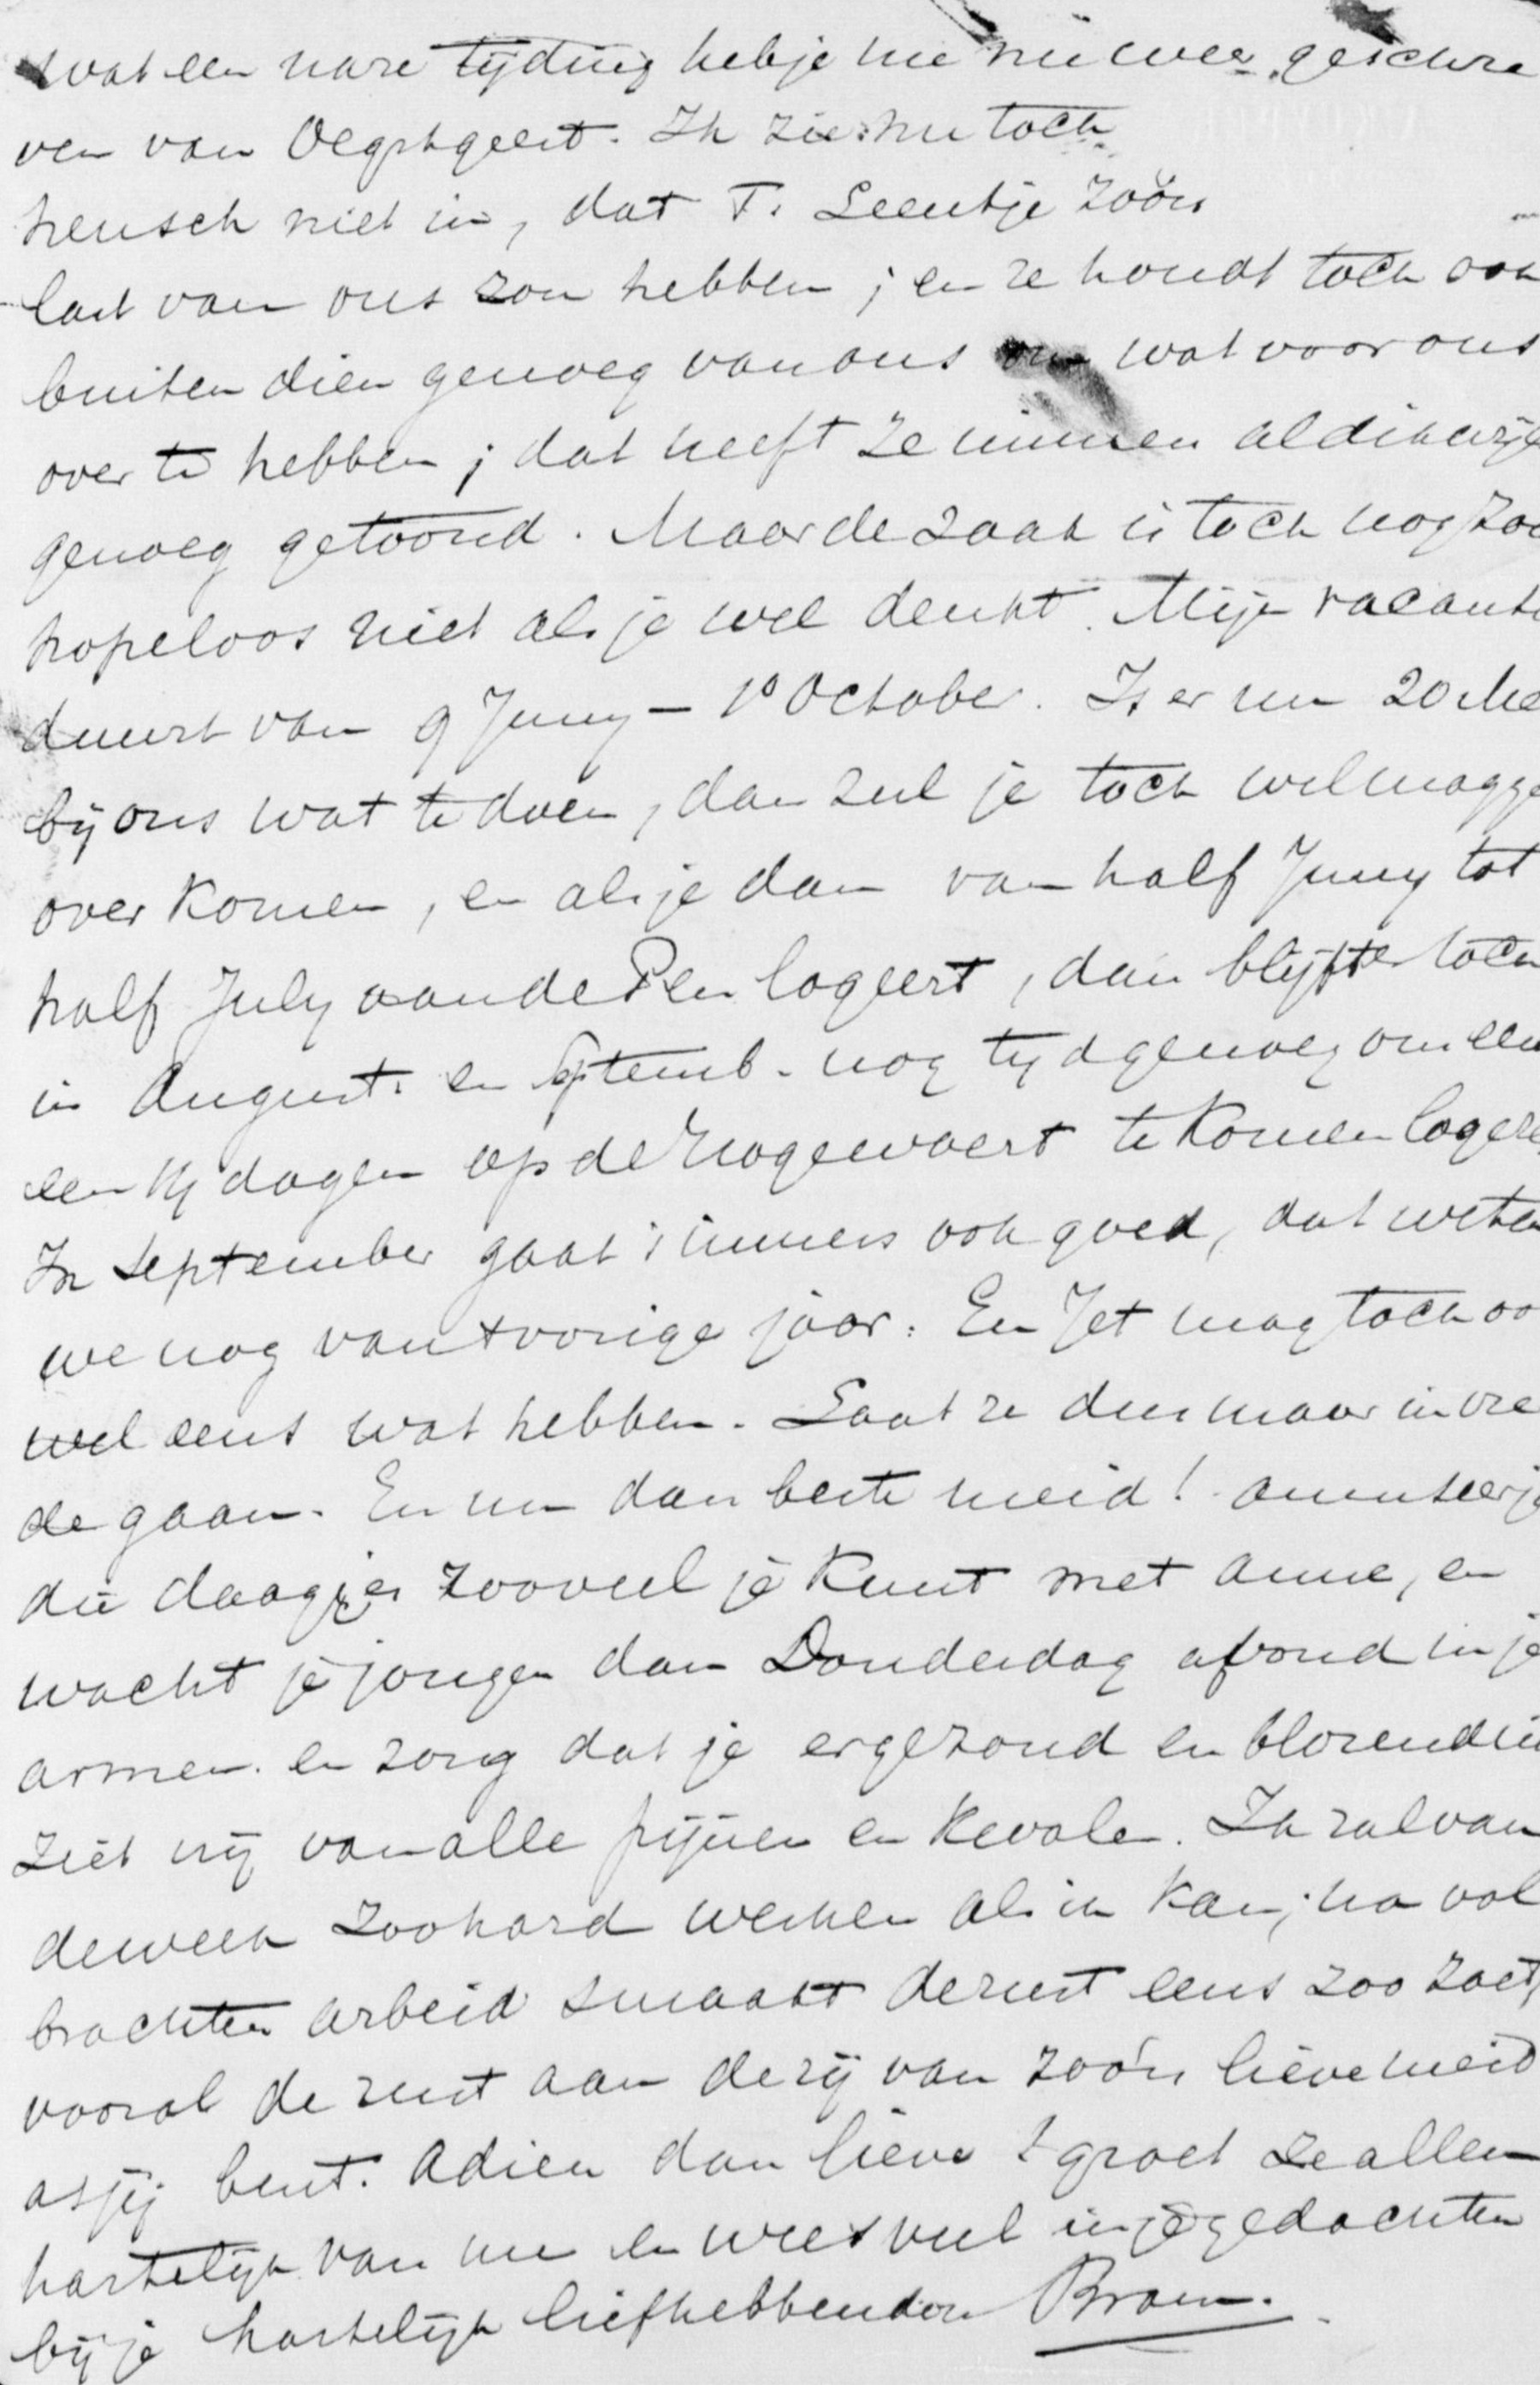 wat een nare tijding heb je me nu weer geschre
ven van Oegstgeest. Ik zie nu toch
heusch niet in, dat T. Leentje zóón
last van ons zou hebben; en ze houdt toch ook
buitendien genoeg van ons om wat voor ons
over te hebben; dat heeft ze immers al dikwijls
genoeg getoond. Maar de zaak is toch nog zoo
hopeloos niet als je wel denkt. Mijn vacantie
duurt van 9 Juny — 1º October. Is er nu 20 Mei
bij ons wat te doen, dan zul je toch wel magge
overkomen, en als je dan van half Juny tot
half July aan de Pen logeert, dan blijft er toch
in August. en Septemb. nog tijd genoeg om een
een 14 dagen op de Hogewoert te komen logere
In September gaat 't immers ook goed, dat weten
we nog van 't vorige jaar. En Jet mag toch oo
wel eens wat hebben. Laat ze dus maar in vre
de gaan. En nu dan beste meid! amuseer je
die daagjes zooveel je kunt met Anne, en
wacht je jongen dan Donderdag avond in je
armen. en zorg dat je er gezond en blozend uit
ziet vrij van alle pijnen en kwalen. Ik zal van
de week zoo hard werken als ik kan; na vol
brachten arbeid smaakt de rust eens zoo zoet,
vooral de rust aan de zij van zóó'n lieve meid
as jij bent. Adieu dan lieve! groet ze allen
hartelijk van me en wees veel in je gedachten
bij je hartelijk liefhebbenden Bram.